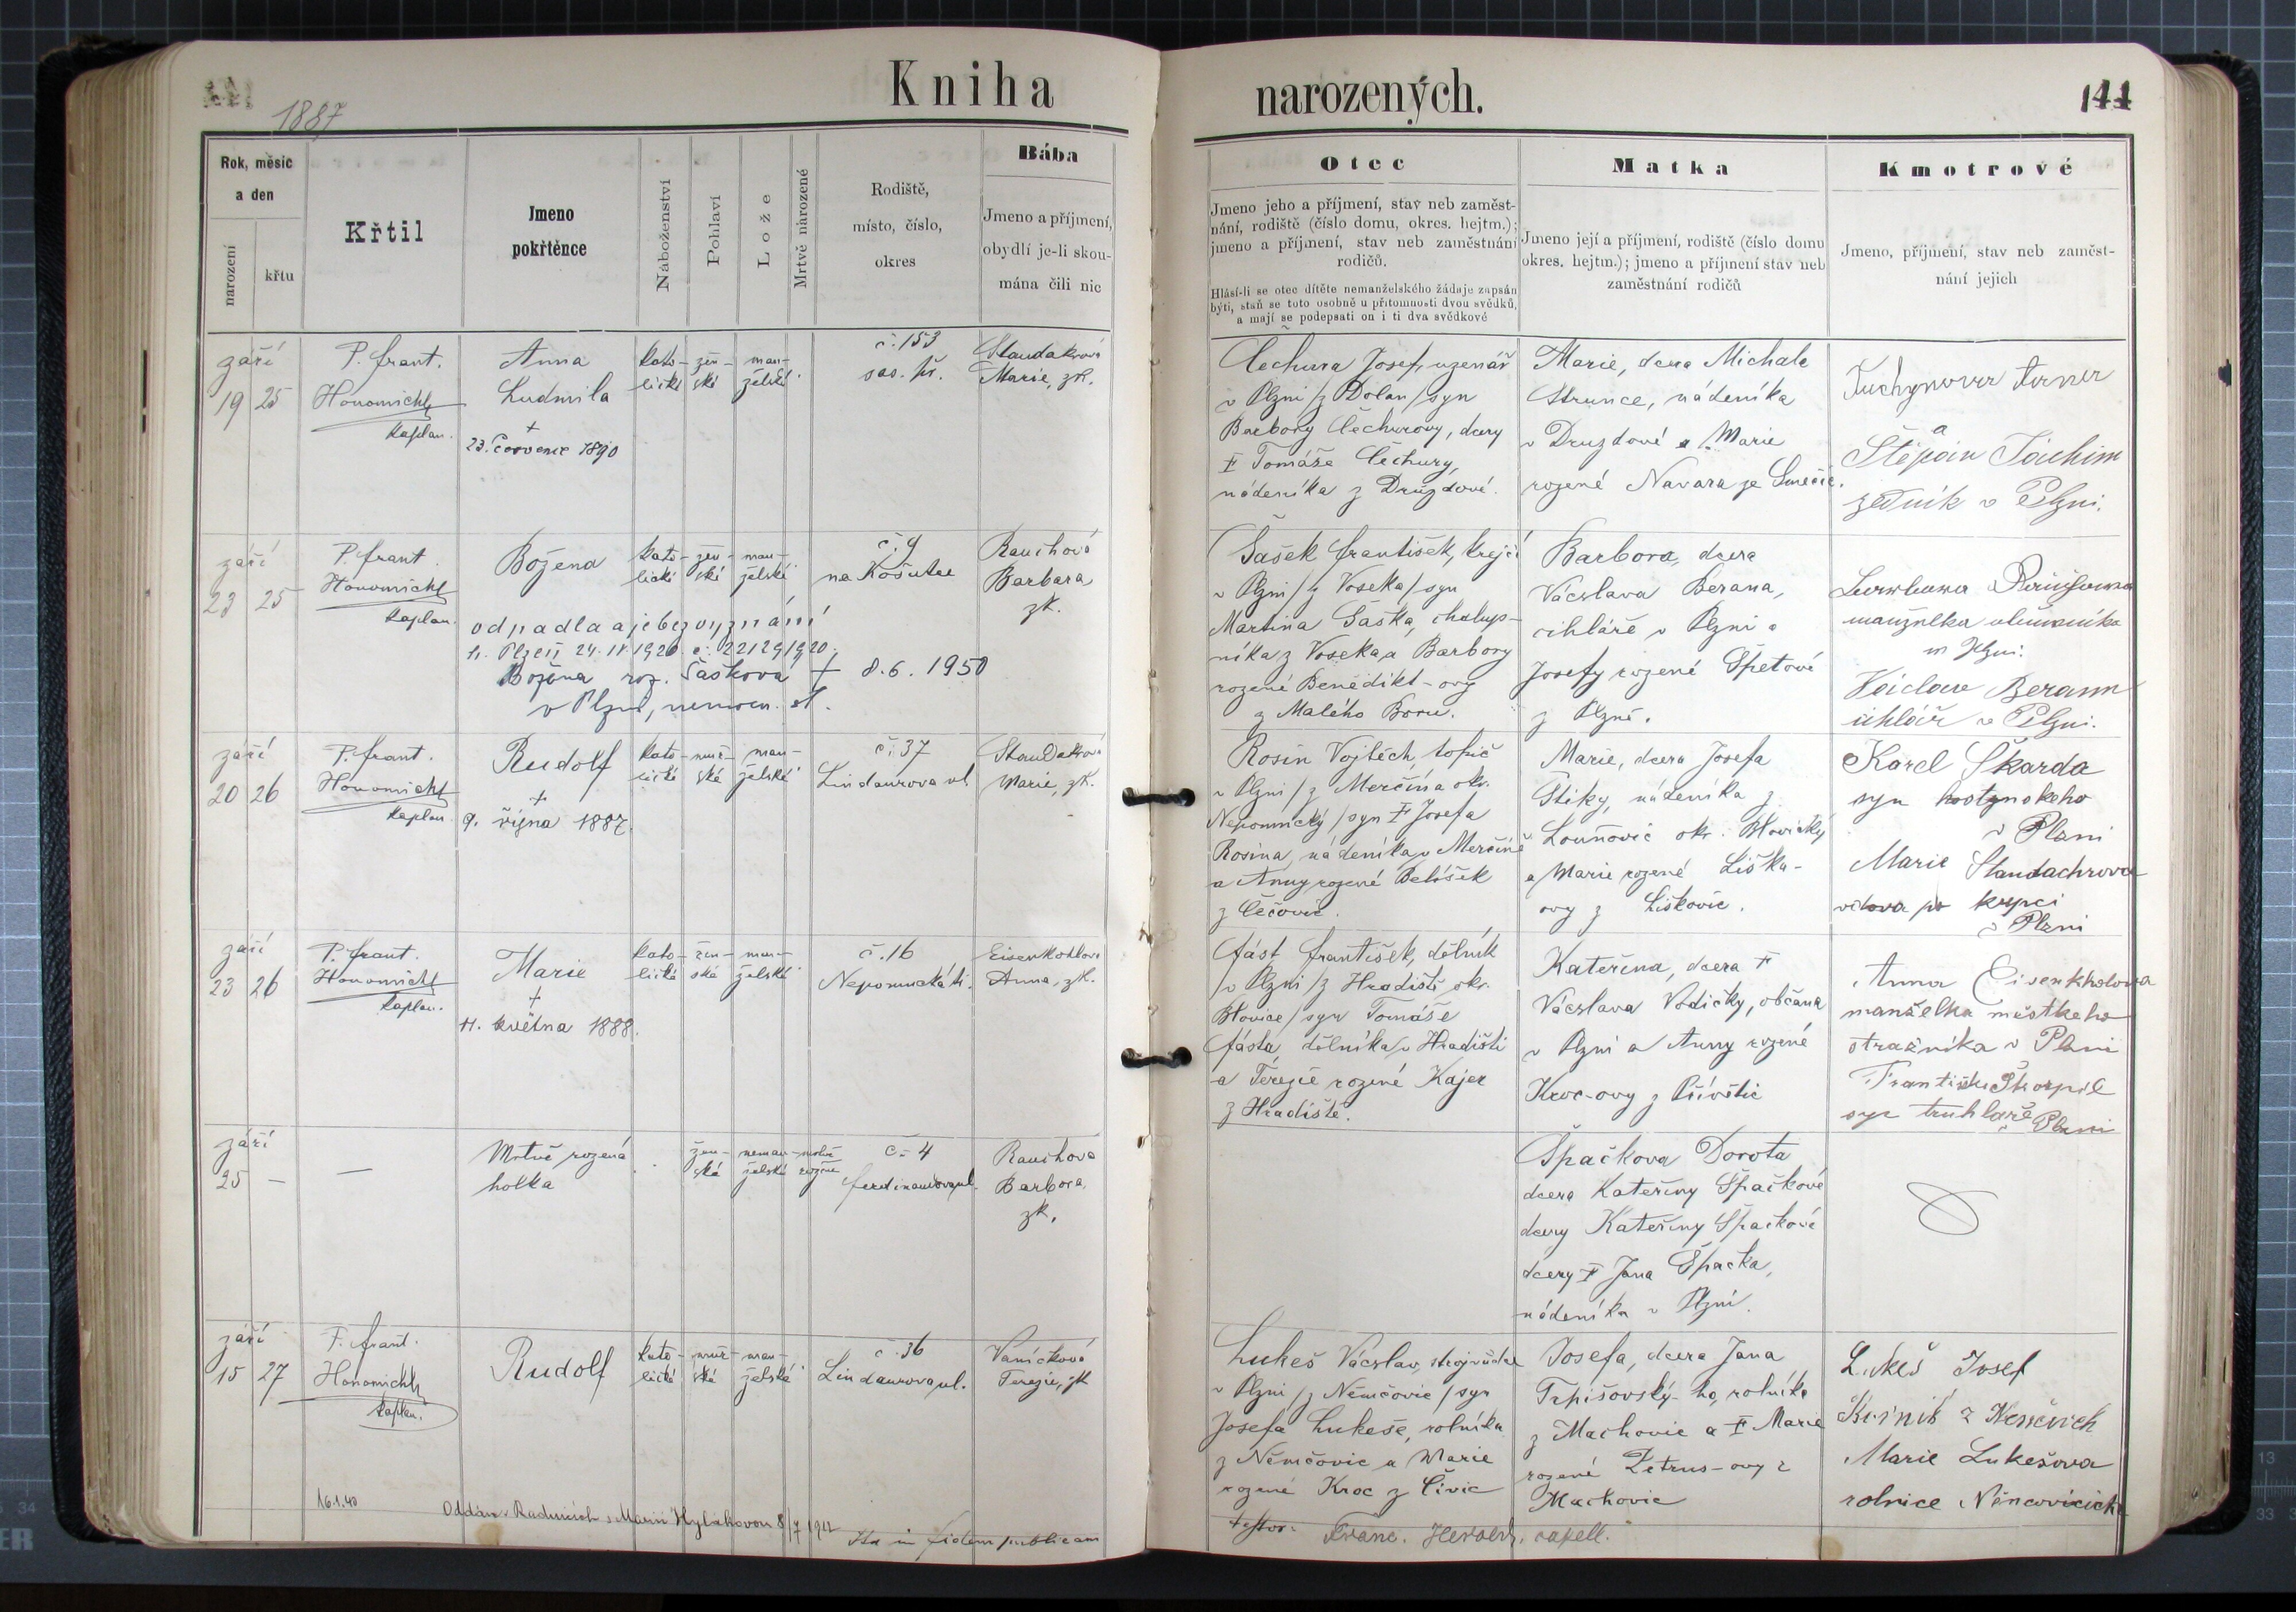 Kniha narozených.
144
1887
Rok, měsíc
a den
narození
křtu
Křtil
Jmeno
pokřtěnce
Náboženství
Pohlaví
Lože
Mrtvě narozené
Rodiště,
místo, číslo,
okres
Bába
Jmeno a příjmení,
obydlí je-li skou-
mána čili nic
Otec
Jmeno jeho a příjmení, stav neb zaměst-
nání, rodiště (číslo domu, okres. hejtm.);
jmeno a příjmení, stav neb zaměstnání
rodičů.
Hlásí-li se otec dítěte nemanželského žádaje zapsán
býti, staň se toto osobně u přítomnosti dvou svědků,
a mají se podepsati on i ti dva svědkové
Matka
Jmeno její a příjmení, rodiště (číslo domu
okres. hejtm.); jmeno a příjmení stav neb
zaměstnání rodičů
Kmotrové
Jmeno, příjmení, stav neb zaměst-
nání jejich
září
19 25
P. frant.
Honomichl
kaplan.
Anna
Ludmila
+
23. července 1890
kato-
lické
žen-
ské
man-
želské
č. 153
sas. př.
Staudakrová
Marie, zk.
Čechura Josef, uzenář
v Plzni /z Dolan/ syn
Barbory Čechurovy, dcery
Tomáše Čechury,
nádeníka z Druzdové.
Marie, dcera Michala
Strunce, nádeníka
v Druzdové a Marie
rozené Navara ze Směčic.
a
Štěpán Jáchim
zedník v Plzni.
září
23 25
P. frant.
Honomichl
kaplan.
Božena
odpadla a je bez vyznání
h. Plzeň 24. II 1920. č. 22129/1920.
Božena roz. Šašková + 8. 6. 1950
v Plzni, nemocn. st.
kato-
lické
žen-
ské
man-
želské
č. 9
na Košutce
Rauchová
Barbara
zk.
Šašek František, krejčí
v Plzni /z Voseka/ syn
Martina Šaška, chalup-
níka z Voseka a Barbory
rozené Benedikt-ovy
z Malého Boru.
Barbora, dcera
Václava Berana,
cihláře v Plzni a
Josefy rozené Špetové
z Plzně.
v Plzni.
Václav Beran
cihlář v Plzni.
září
20 26
P. frant.
Honomichl
kaplan.
Rudolf
+
9. října 1887.
kato-
lické
muž-
ské
man-
želské
č. 37
Lindaurova ul.
Staudakrová
Marie, zk.
Rosin Vojtěch, topič
v Plzni /z Merčína okr.
Nepomucký/ syn Josefa
Rosina, nádeníka v Merčíně
a Anny rozené Belíšek
z Čečovic.
Marie, dcera Josefa
Štiky, nádeníka z
Louňovic okr. Blovický
a Marie rozené Liška-
ovy z Liškovic.
Karel Škarda
syn hostynskeho
v Plzni
Marie Staudachrova
vdova po krejci
v Plzni
září
23 26
P. frant.
Honomichl
kaplan.
Marie
+
11. května 1888.
kato-
lické
žen-
ské
man-
želské
č. 16
Nepomucká tř.
Eisenkohlová
Anna, zk.
Fást František, dělník
/v Plzni /z Hradiště okr.
Blovice/ syn Tomáše
Fásta, dělníka v Hradišti
a Terezie rozené Kajer
z Hradiště.
Kateřina, dcera
Václava Vodičky, občana
v Plzni a Anny rozené
Kroc-ovy z Přívětic
Anna Eisenkholova
manželka městkeho
stražníka v Plzni
František Skorpil
syn truhlaře v Plzni
září
25 —
—
Mrtvě rozená
holka
žen-
ské
neman-
želské
mrtvě
rozené
č. 4
Ferdinandova ul.
Rauchová
Barbora,
zk.
Špačkova Dorota
dcera Kateřiny Špačkové
dcery Kateřiny Špačkové
dcery Jana Špačka,
nádeníka v Plzni.
září
15 27
P. frant.
Honomichl
kaplan.
Rudolf
kato-
lické
muž-
ské
man-
želské
č. 36
Lindaurova ul.
Vaníčková
Terezie, zk
Lukeš Václav, strojvůdce
v Plzni /z Němčovic/ syn
Josefa Lukeše, rolníka
z Němčovic a Marie
rozené Kroc z Čivic
Josefa, dcera Jana
Trpišovský-ho, rolníka
z Machovic a Marie
rozené Petrus-ovy z
Machovic
Lukeš Josef
Marie Lukešova
rolnice
16.1.40
Oddán v Radnicích s Marií Hylákovou 8/7 1912
Ita in fidem publicam
testor: Franc. Herold, capell.